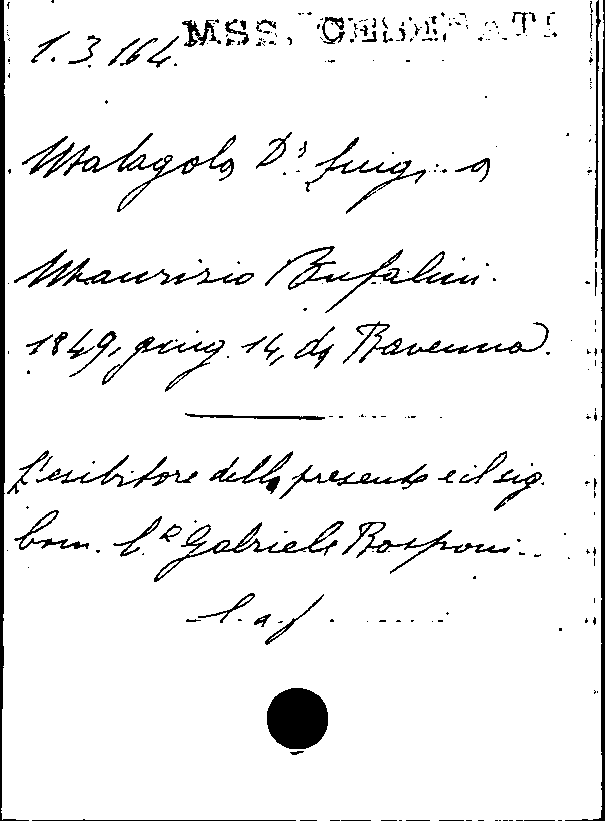 MSS. CEREMATI
1.3.164.
Malagola D.r Luigi a
Maurizio Bufalini.
1849, giug. 14, da Ravenna.
L'esibitore della presente è il sig.
Gabriele Rasponi...
l. a. f.